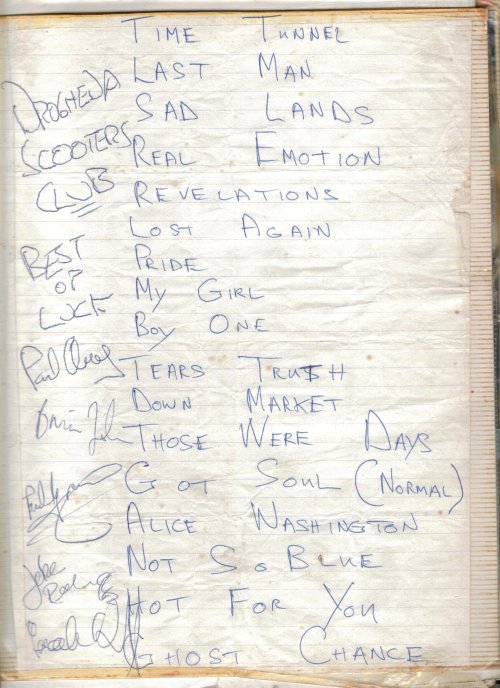 TIME TUNNEL
LAST MAN
SAD LANDS
REAL EMOTION
REVELATIONS
LOST AGAIN
PRIDE
MY GIRL
BOY ONE
TEARS
DOWN MARKET
THOSE WERE DAYS
GOT SOUL (NORMAL)
ALICE WASHINGTON
NOT SO BLUE
HOT FOR YOU
GHOST CHANCE
DROGHEDA
SCOOTERS
CLUB
BEST
OF
LUCK
Paul